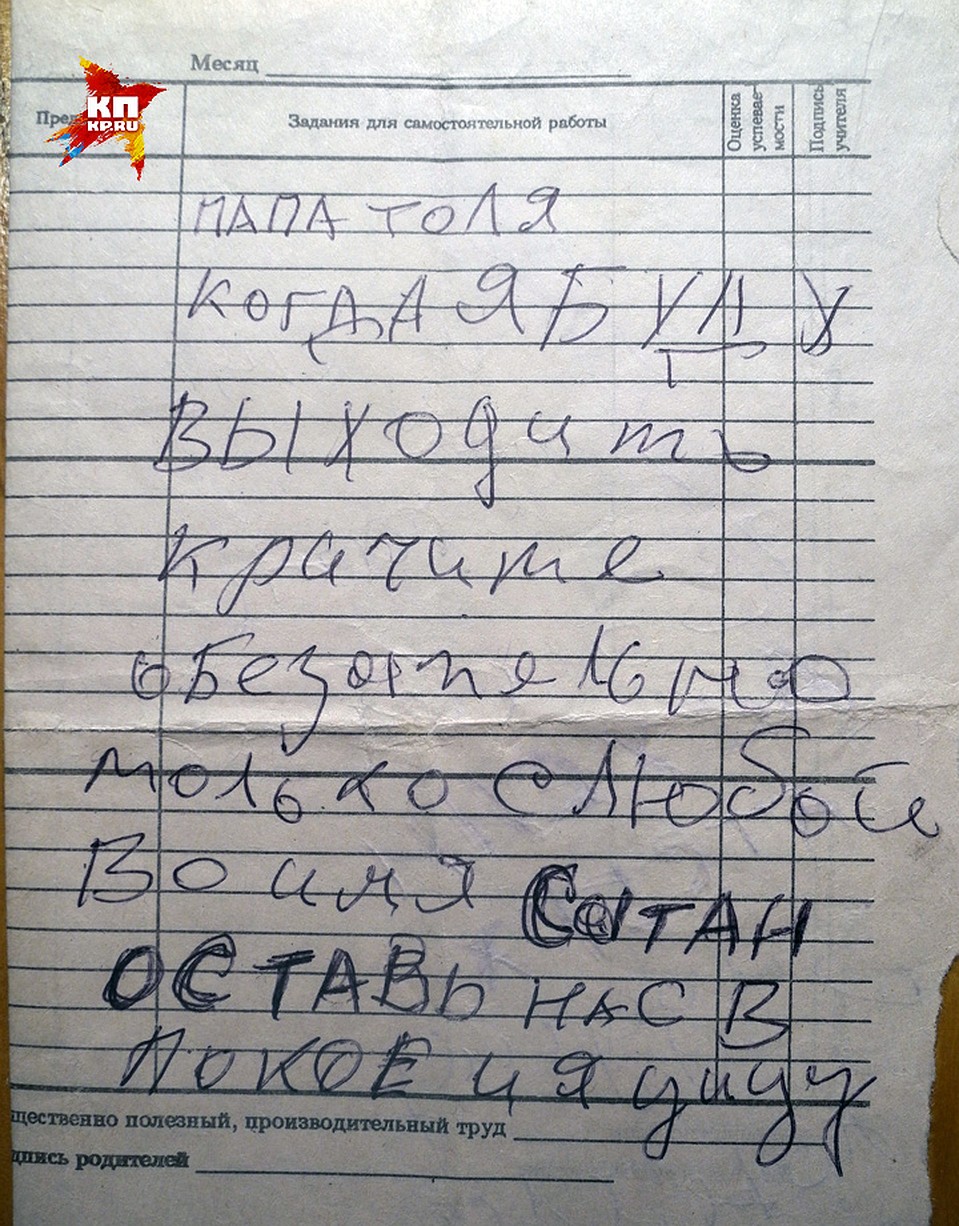 Месяц
КП
KP.RU
Пред
Задания для самостоятельной работы
Оценка успевае-мости
Подпись учителя
ПАПА ТОЛЯ
КОГДА Я БУДУ
ВЫХОДИТЬ
кричите
обезательно
только с любой
Во имя САТАН
ОСТАВЬ НАС В
ПОКОЕ и я уйду
щественно полезный, производительный труд
дпись родителей